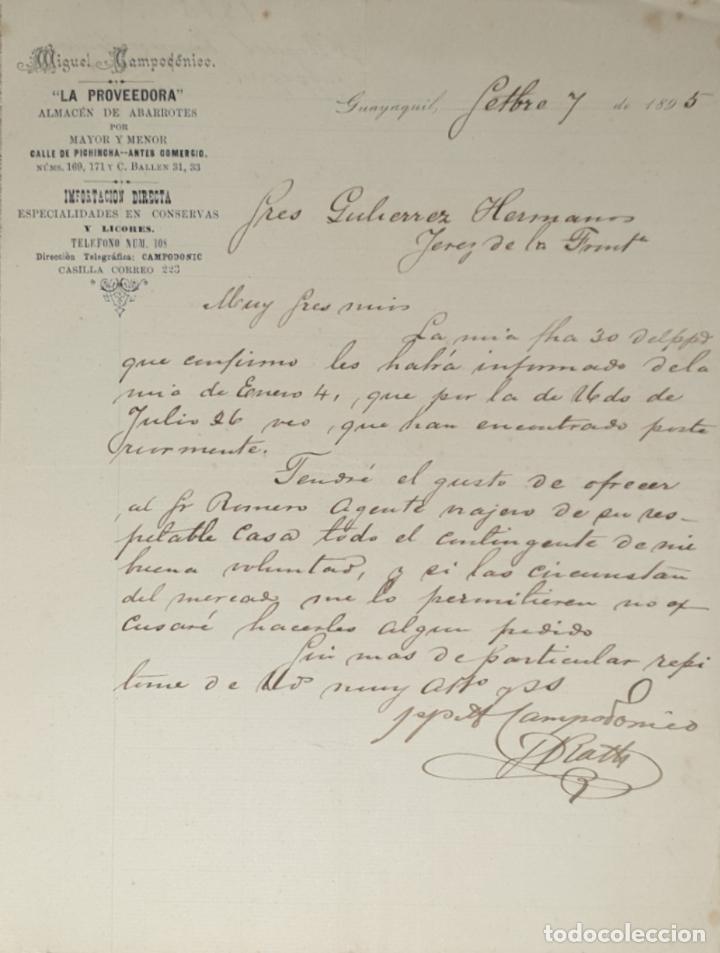 Miguel Campodónico.
"LA PROVEEDORA"
ALMACÉN DE ABARROTES
POR
MAYOR Y MENOR
CALLE DE PICHINCHA--ANTES COMERCIO.
NÚMS. 169, 171 Y C. BALLEN 31, 33
IMPORTACION DIRECTA
ESPECIALIDADES EN CONSERVAS
Y LICORES.
TELEFONO NUM. 108
Dirección Telegráfica: CAMPODONIC
CASILLA CORREO 223
Guayaquil, Setbre 7 de 1895
Sres Gutierrez Hermanos
Jerez de la Frontª
Muy Sres mios
La mia fha 30 del ppdo
que confirmo les habrá informado de la
mia de Enero 4, que por la de Uds de
Julio 26 veo, que han encontrado poste
riormente.
Tendré el gusto de ofrecer
al Sr Romero Agente viajero de su res-
petable Casa todo el contingente de mi
buena voluntad, y si las circunstan
del mercado me lo permitieren no ex
cusaré hacerles algun pedido
Sin mas de particular repi
tome de Uds muy atto SS
Campodonico
todocoleccion.net